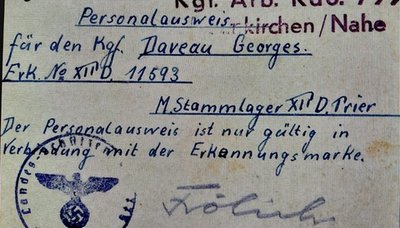 Kgf. Arb. Kdo. 799
Personalausweis kirchen/Nahe
für den Kgf. Daveau Georges.
Erk. No XII D. 11593
M. Stammlager XII D. Trier
Der Personalausweis ist nur gültig in
Verbindung mit der Erkennungsmarke.